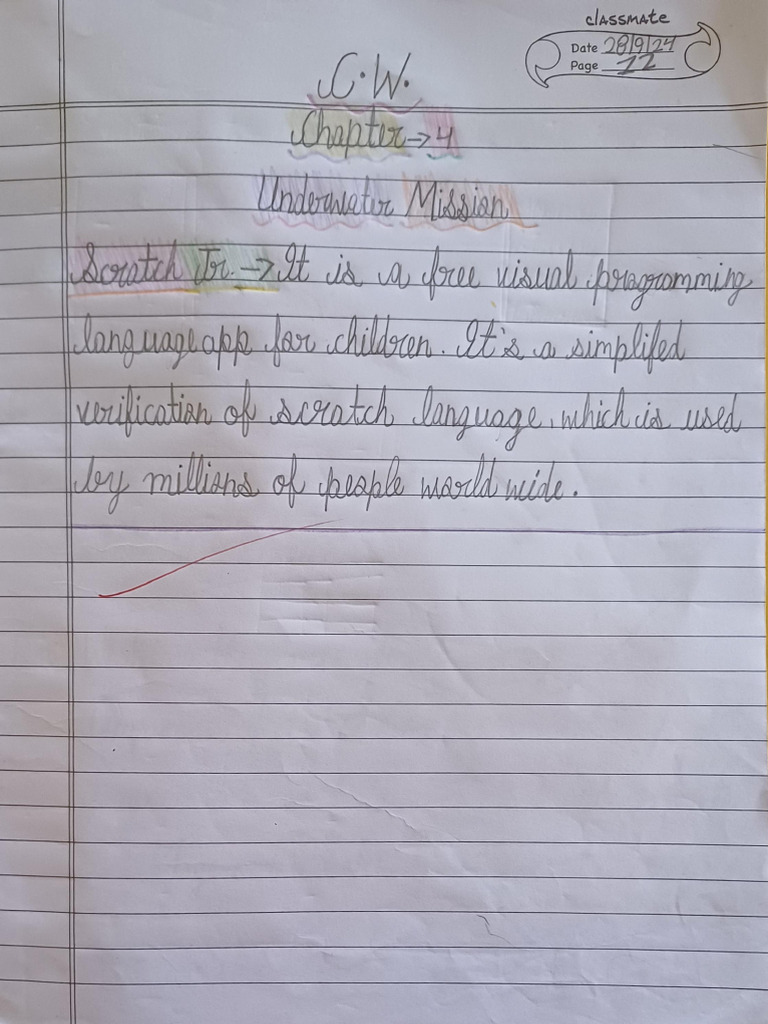 classmate
Date 28/9/24
Page 22
C.W.
Chapter → 4
Underwater Mission
Scratch Jr. → It is a free visual programming
language app for children. It's a simplifed
verification of scratch language, which is used
by millions of people world wide.